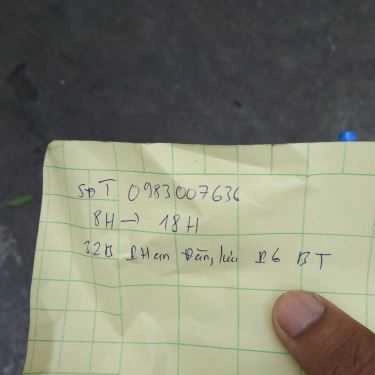 SĐT 0983007636
8H → 18H
32B Phan Đăng Lưu P6 BT